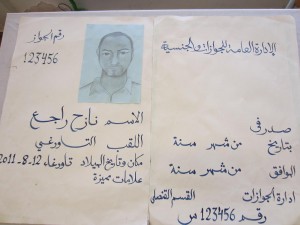 الإدارة العامة للجوازات والجنسية
صدر في
بتاريخ من شهر سنة
الموافق من شهر سنة
ادارة الجوازات القسم القنصلي
رقم 123456 س
رقم الجواز
123456
الاسم نازح راجع
اللقب التاورغي
مكان وتاريخ الميلاد تاورغاء 12-8-2011
علامات مميزة